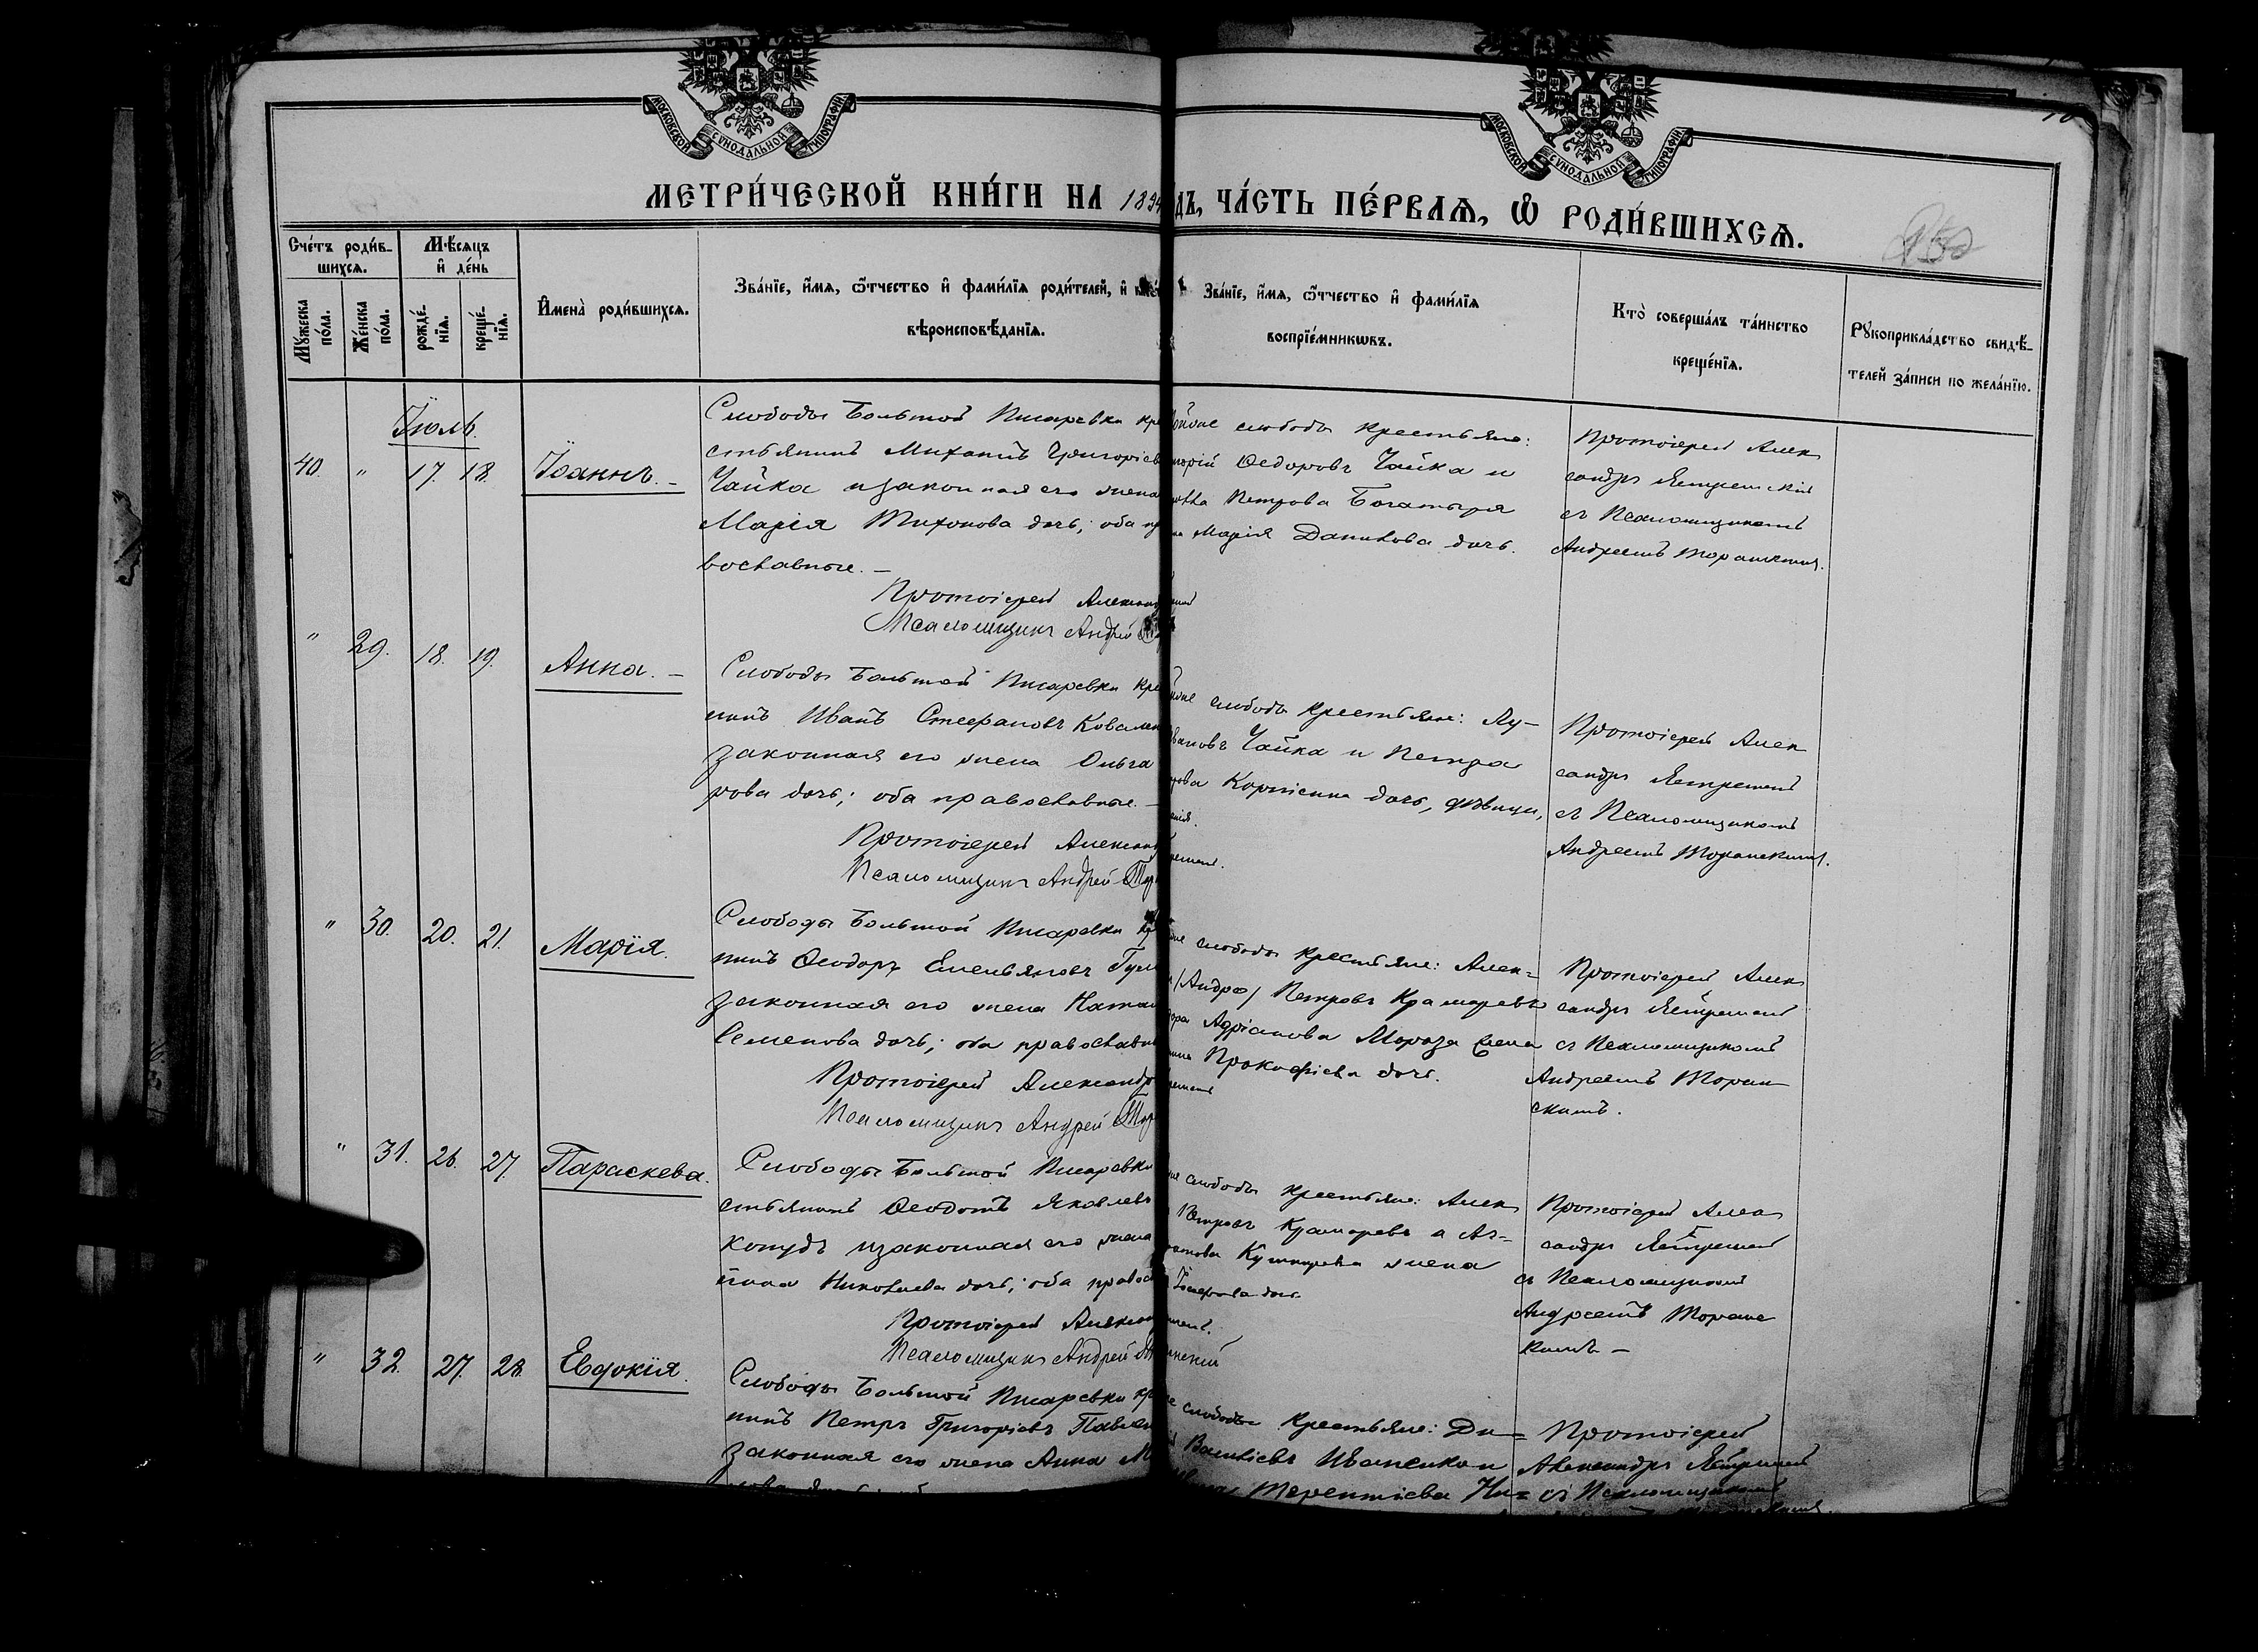 МОСКОВСКОЙ СУНОДАЛЬНОЙ ТИПОГРАФІИ
МОСКОВСКОЙ СУНОДАЛЬНОЙ ТИПОГРАФІИ
МЕТРИ́ЧЕСКОЙ КНИ́ГИ НА 1894
ДЪ, ЧА́СТЬ ПЕ́РВАѦ, Ѡ РОДИ́ВШИХСѦ.
Сче́тъ роди́в-
шихсѧ.
Мѣ́сѧцъ
и де́нь
Мꙋ́жеска по́ла.
Же́нска по́ла.
рожде́-
нїѧ.
креще́-
нїѧ.
Имена̀ роди́вшихсѧ.
Зва́нїе, и́мѧ, ѻ́тчество и фами́лїѧ роди́телей, и
вѣроисповѣ́данїѧ.
Зва́нїе, и́мѧ, ѻ́тчество и фами́лїѧ
воспрїе́мникѡвъ.
Кто̀ соверша́лъ та́инство
креще́нїѧ.
Рꙋкоприкла́дство свидѣ́-
телей за́писи по жела́нїю.
Іюль.
40. " 17. 18. Іоаннъ. –
Слободы Большой Писаревки кре
стьянинъ Михаилъ Григорьев
Чайка и законная его жена
Марія Тихонова дочь; оба пр
вославные. –
Протоіерей Александ
Псаломщикъ Андрей
слободы крестьяне:
Ѳедоровъ Чайка и
Петрова Богатыря
Марія Данилова дочь.
Протоіерей Алек
сандръ Ястремскій
съ Псаломщикомъ
Андреемъ Торанскимъ.
" 29. 18. 19. Анна. –
Слободы Большой Писаревки кре
нинъ Иванъ Стефановъ Ковален
законная его жена Ольга
рова дочь; оба православные. –
Протоіерей Александ
Псаломщикъ Андрей Тор
слободы крестьяне: Лу-
вановъ Чайка и Петра
Корніенка дочь, дѣвица,
Протоіерей Алек
сандръ Ястремскій
съ Псаломщикомъ
Андреемъ Торанскимъ.
" 30. 20. 21. Марія.
Слободы Большой Писаревки кр
нинъ Ѳеодоръ Емельяновъ
законная его жена Натал
Семенова дочь; оба православн
Протоіерей Александр
Псаломщикъ Андрей Тор
слободы крестьяне: Алек=
Петровъ Крамаревъ
Адріанова Мороза жена
Прокофіева дочь.
Протоіерей Алек
сандръ Ястремскій
съ Псаломщикомъ
Андреемъ Торан
скимъ.
" 31. 26. 27. Параскева.
Слободы Большой Писаревки
стьянинъ Ѳеодотъ Яковлевъ
и законная его жена
Николаева дочь; оба правос
Протоіерей Алексан
Псаломщикъ Андрей
слободы крестьяне: Алек
Петровъ Крамаревъ и Аг=
жена
дочь
Протоіерей Алек
сандръ Ястремскій
съ Псаломщикомъ
Андреемъ Торанс
кимъ –
" 32. 27. 28. Евдокія.
Слободы Большой Писаревки кр
нинъ Петръ Григорьевъ Павлен
законная его жена Анна М
слободы крестьяне: Ди=
Васильевъ Иваненко и
Терентіева Ни=
Протоіерей
Александръ Ястремскій
съ Псаломщикомъ